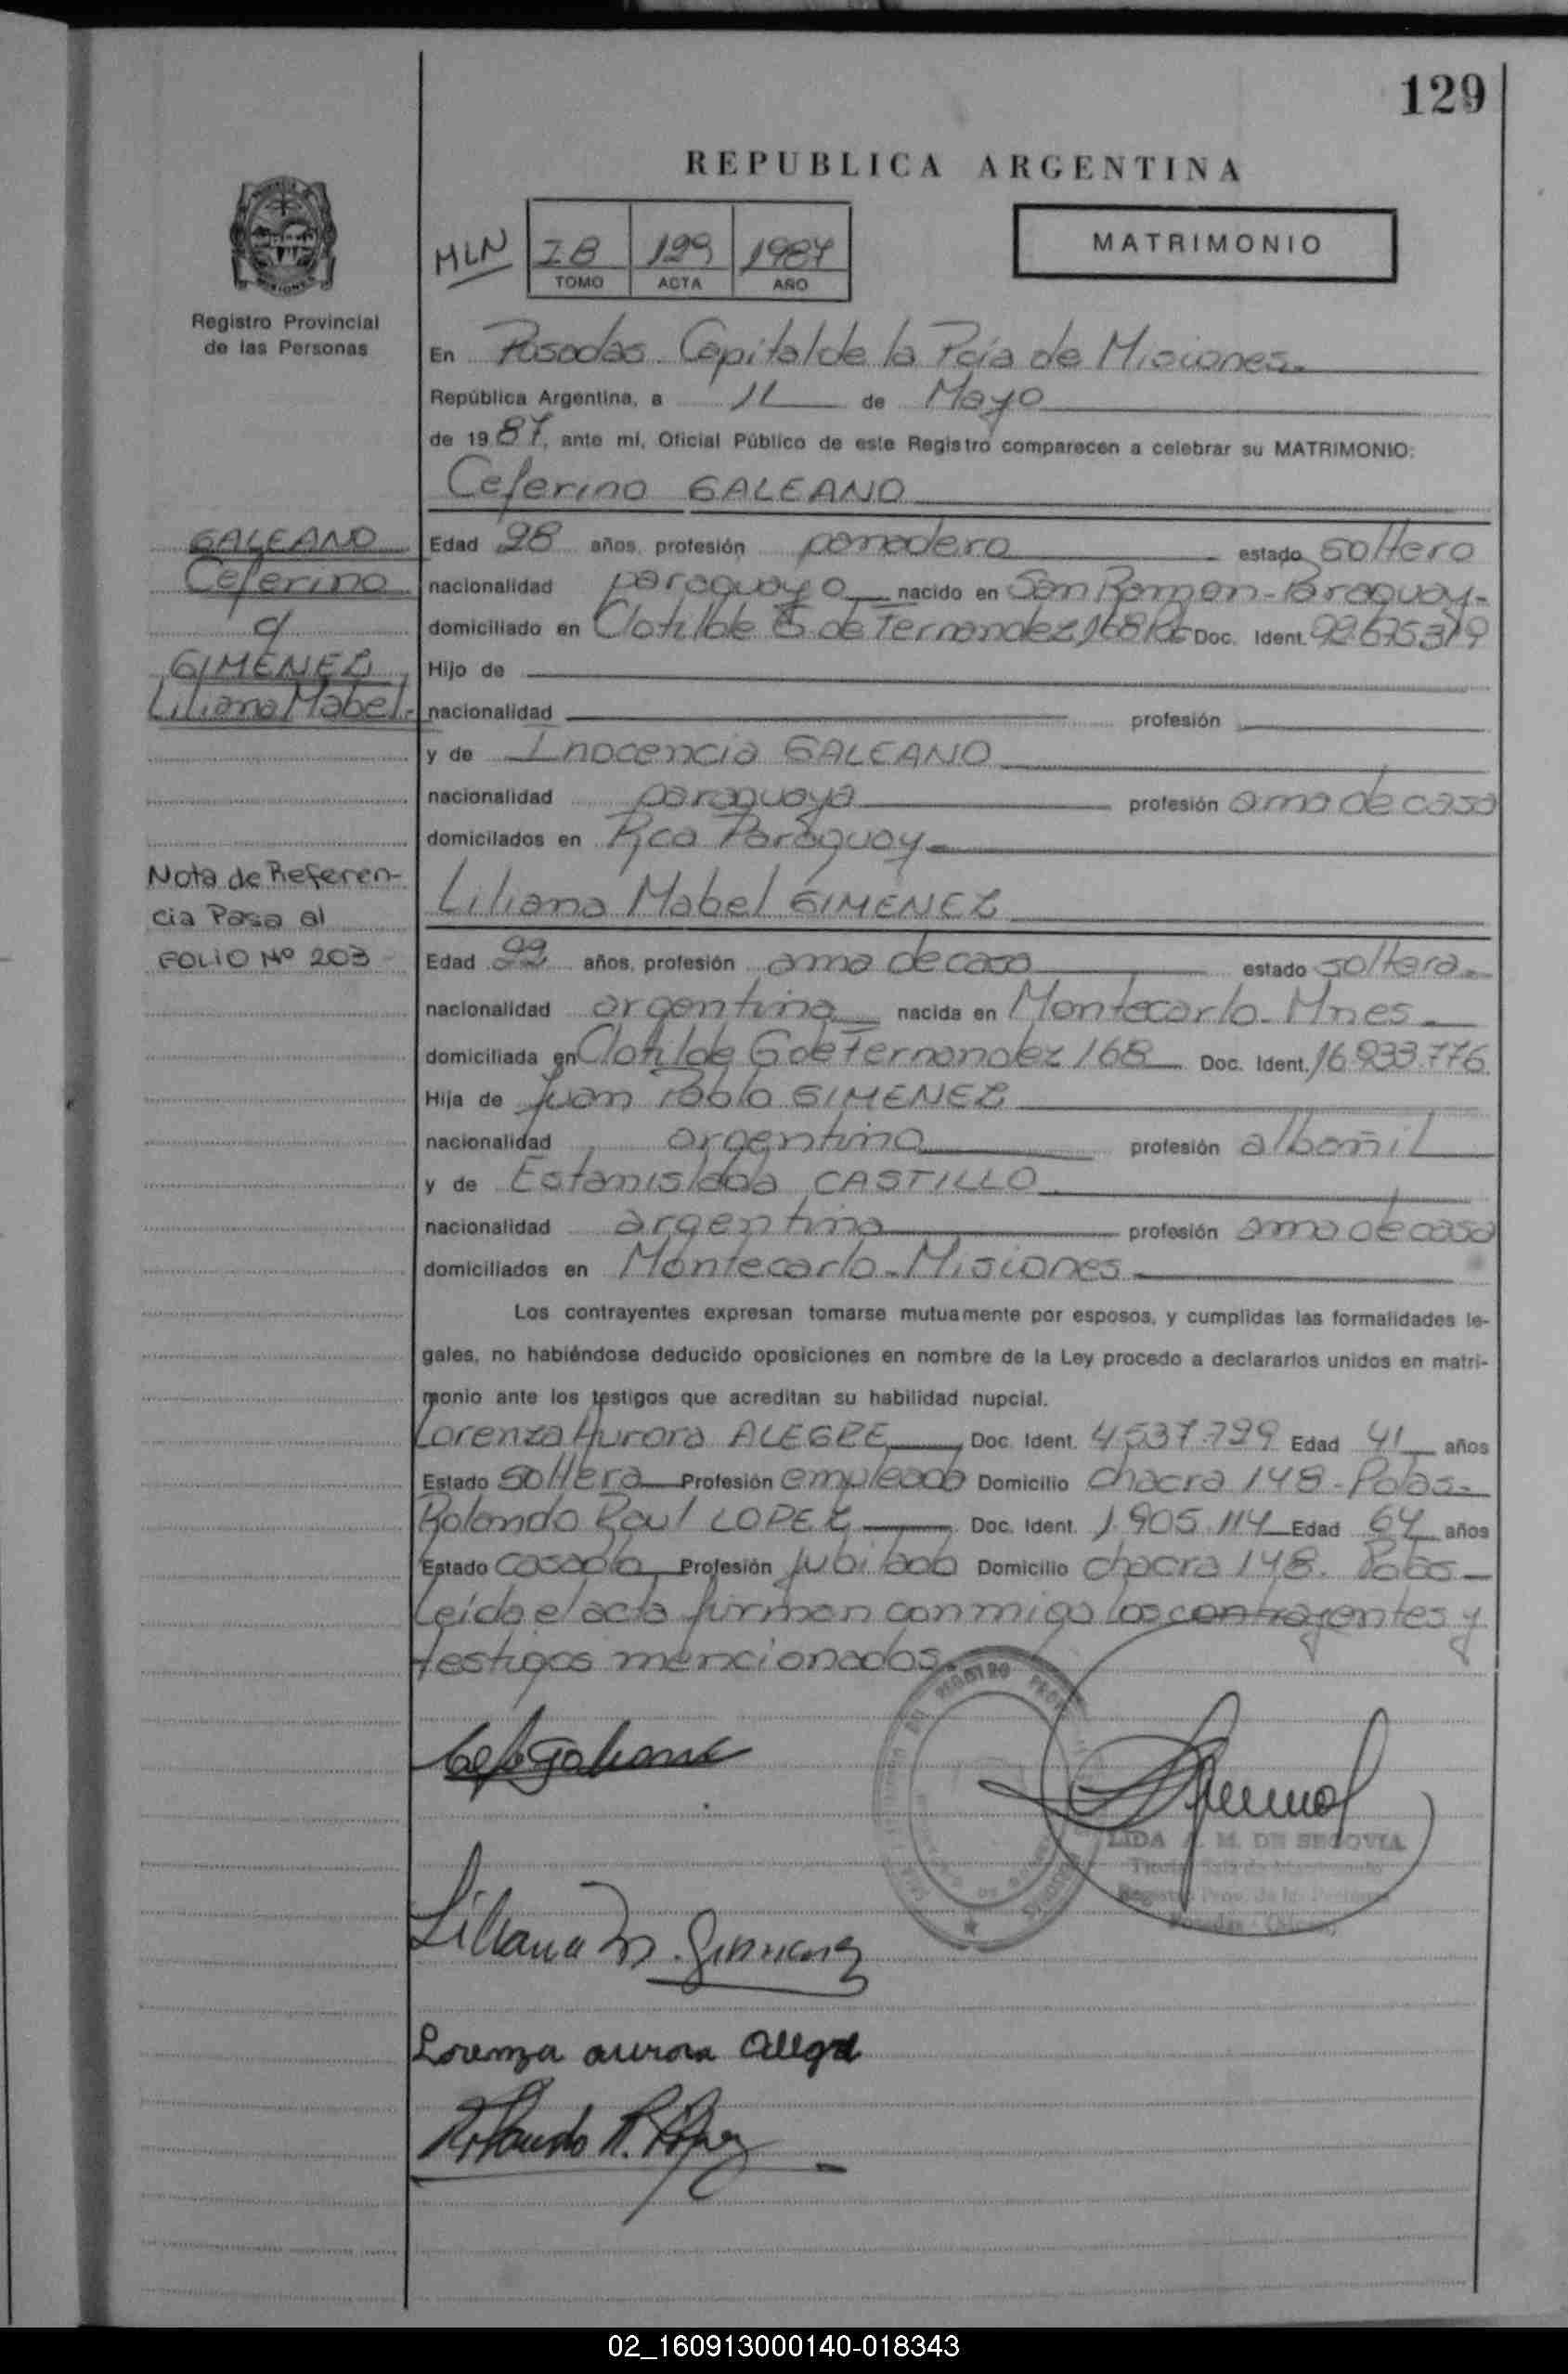 129
REPUBLICA ARGENTINA
MLN
IB 129 1987
TOMO ACTA AÑO
MATRIMONIO
Registro Provincial
de las Personas
En Posadas Capital de la Pcia de Misiones
República Argentina, a 11 de Mayo
de 1987, ante mí, Oficial Público de este Registro comparecen a celebrar su MATRIMONIO:
Ceferino GALEANO
GALEANO
Ceferino
c/
GIMENEZ
Liliana Mabel.
Edad 28 años, profesión panadero estado soltero
nacionalidad paraguayo nacido en San Ramon-Paraguay-
domiciliado en Clotilde G de Fernandez 168 Doc. Ident. 92.675.319
Hijo de
nacionalidad profesión
y de Inocencia GALEANO
nacionalidad paraguaya profesión ama de casa
domicilados en Rca Paraguay
Nota de Referen-
cia Pasa al
FOLIO Nº 203
Liliana Mabel GIMENEZ
Edad 22 años, profesión ama de casa estado soltera
nacionalidad argentina nacida en Montecarlo-Mnes
domiciliada en Clotilde G de Fernandez 168 Doc. Ident. 16.933.776
Hija de Juan Pablo GIMENEZ
nacionalidad argentino profesión albañil
y de Estanislada CASTILLO
nacionalidad argentina profesión ama de casa
domiciliados en Montecarlo-Misiones
Los contrayentes expresan tomarse mutuamente por esposos, y cumplidas las formalidades le-
gales, no habiéndose deducido oposiciones en nombre de la Ley procedo a declararlos unidos en matri-
monio ante los testigos que acreditan su habilidad nupcial.
Lorenza Aurora ALEGRE Doc. Ident. 4.537.799 Edad 41 años
Estado soltera Profesión empleada Domicilio chacra 148-Pdas-
Rolando Raul LOPEZ Doc. Ident. 1.905.114 Edad 64 años
Estado casado Profesión jubilado Domicilio chacra 148. Pdas
Leída el acta firman conmigo los contrayentes y
testigos mencionados
Liliana M. Gimenez
LIDA A. M. DE SEGOVIA
Lorenza aurora Alegre
Rolando R. López
02_160913000140-018343